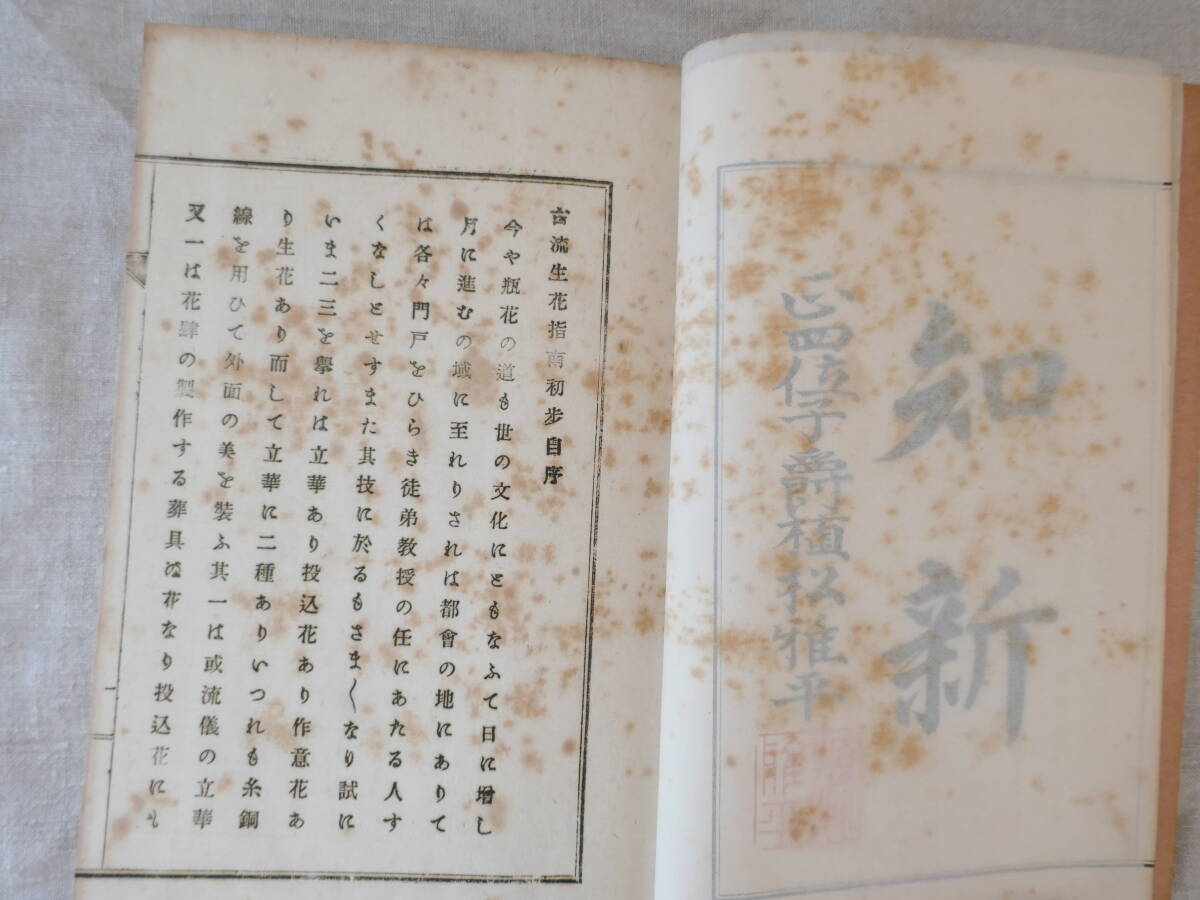 知新
正四位子爵植松雅平
古流生花指南初步自序
今や瓶花の道も世の文化にともなふて日に增し
月に進むの域に至れりされは都會の地にありて
は各々門戸をひらき徒弟教授の任にあたる人す
くなしとせすまた其技に於るもさま〱なり試に
いま二三を擧れは立華あり投込花あり作意花あ
り生花あり而して立華に二種ありいつれも糸銅
線を用ひて外面の美を裝ふ其一は或流儀の立華
又一は花肆の製作する葬具の花なり投込花にも
一